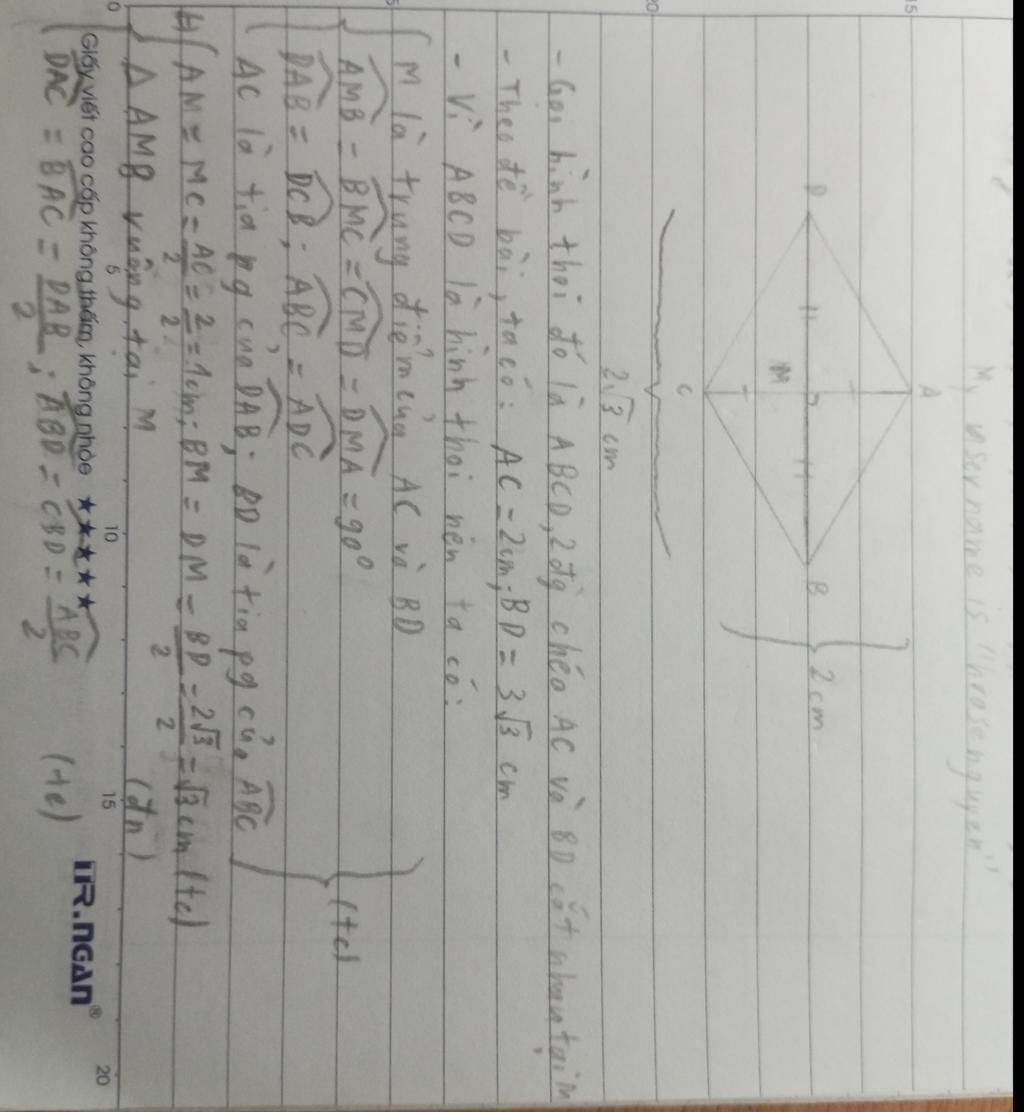 My username is "throsenguyen"
A
D
B
M
C
2 cm
2√3 cm
- Gọi hình thoi đó là ABCD, 2 đg chéo AC và BD cắt nhau tại M
- Theo đề bài, ta có: AC = 2cm; BD = 3√3 cm
- Vì ABCD là hình thoi nên ta có:
M là trung điểm của AC và BD
AMB = BMC = CMD = DMA = 90°
DAB = DCB; ABC = ADC
AC là tia pg của DAB; BD là tia pg của ABC
(tc)
AM = MC = AC/2 = 2/2 = 1cm; BM = DM = BD/2 = 2√3/2 = √3 cm (tc)
Δ AMB vuông tại M (đn)
DAC = BAC = DAB/2; ABD = CBD = ABC/2 (tc)
Giấy viết cao cấp không thấm, không nhòe ★★★★★ TR.NGAN®
0 5 10 15 20
5
20
15